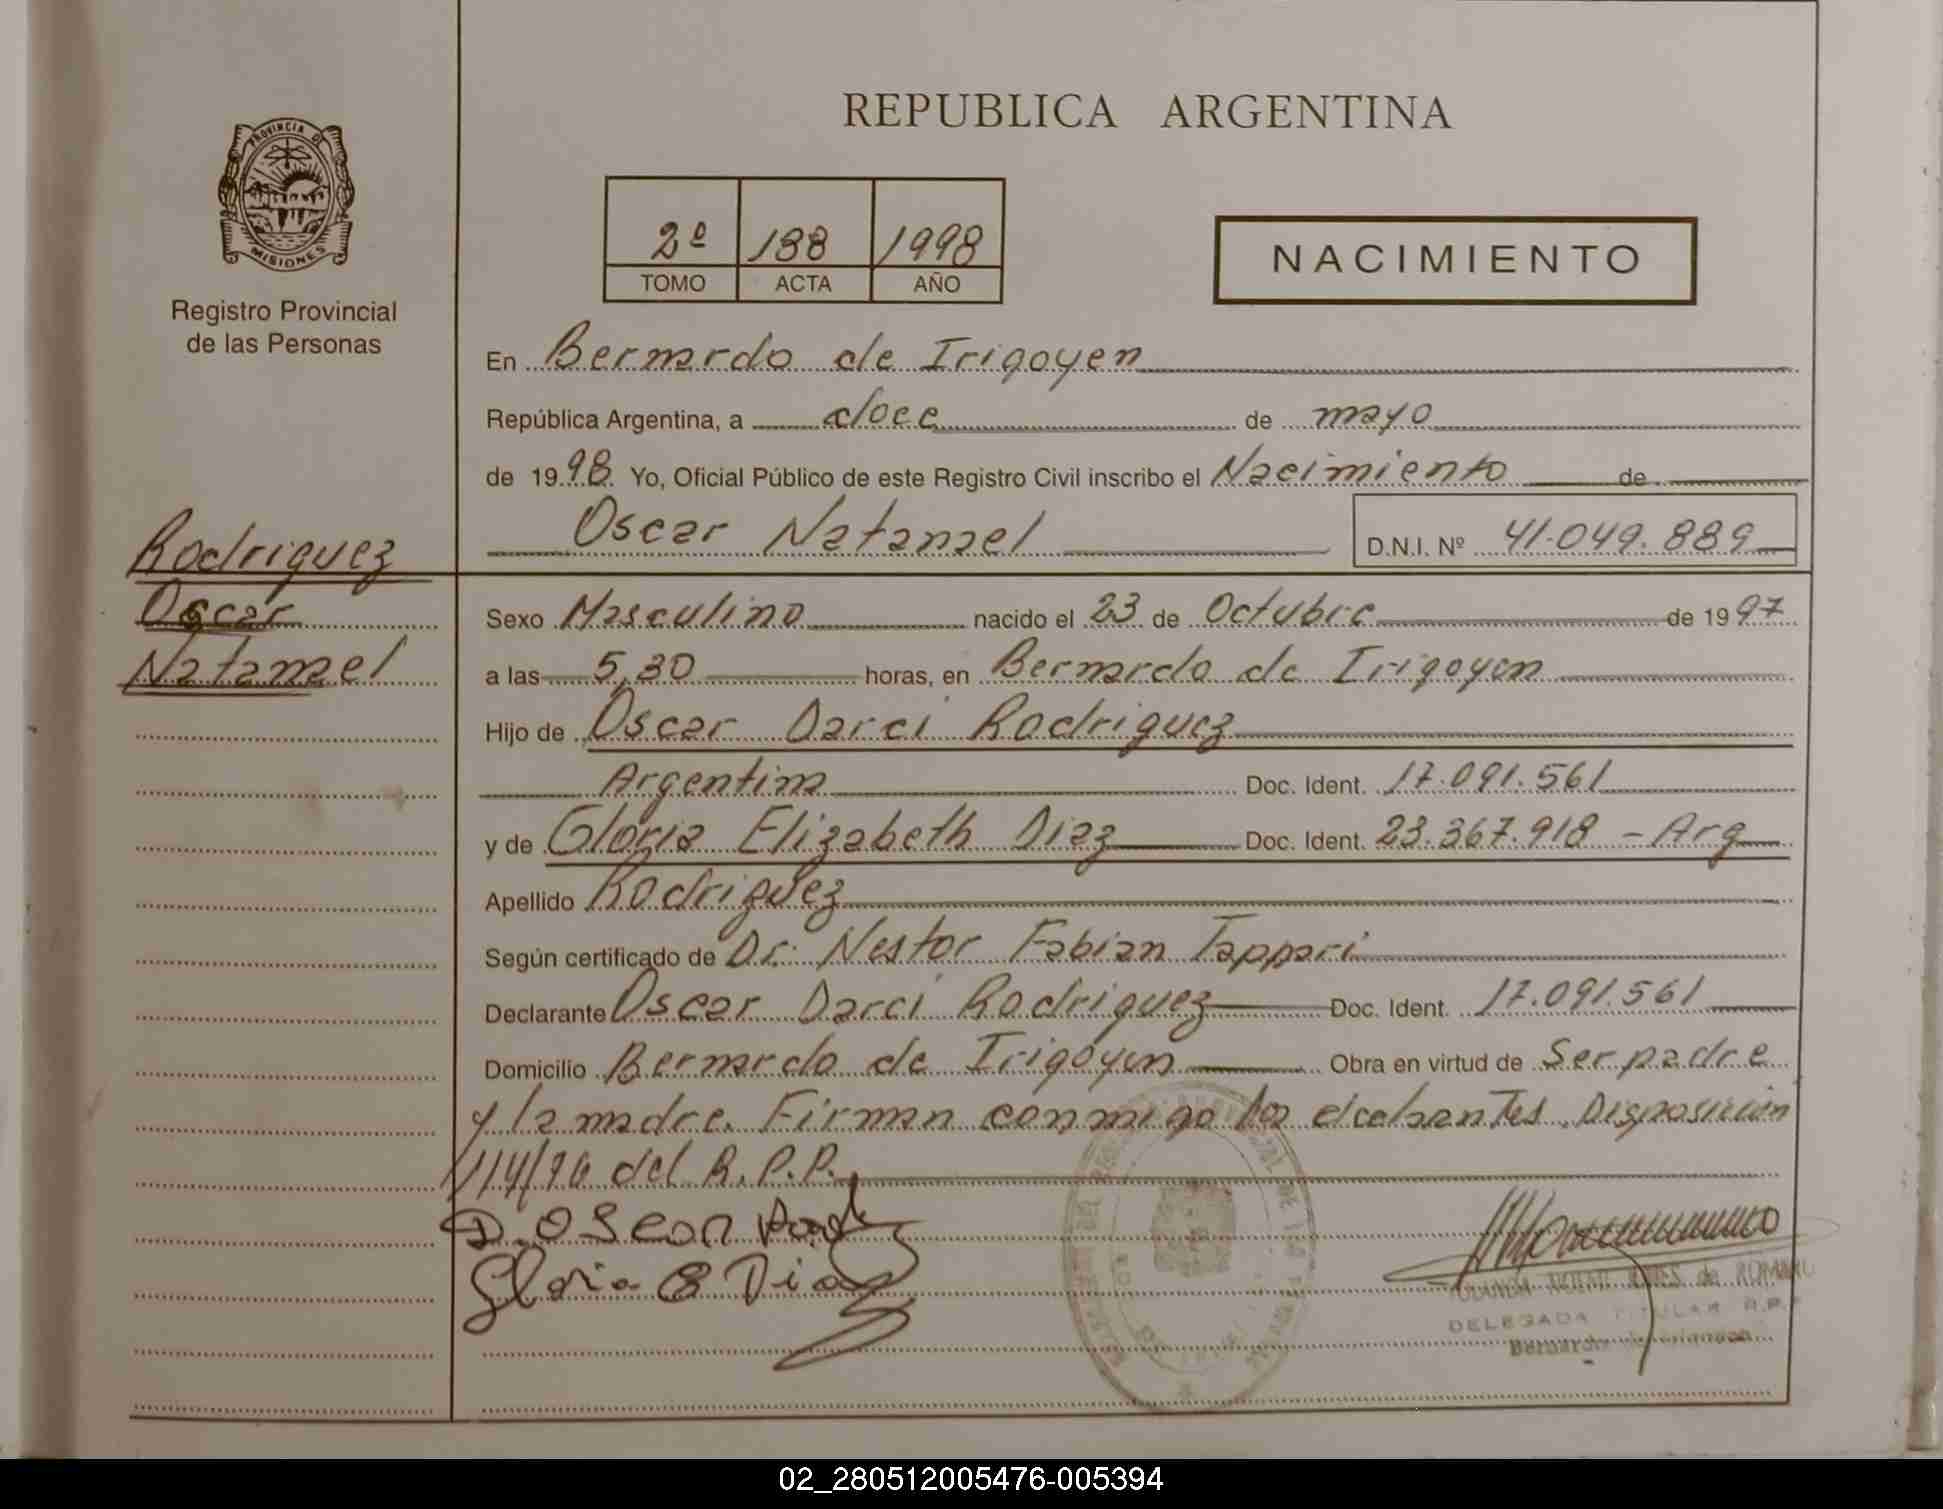 REPUBLICA ARGENTINA
PROVINCIA DE
MISIONES
Registro Provincial
de las Personas
2º 188 1998
TOMO ACTA AÑO
NACIMIENTO
En Bernardo de Irigoyen
República Argentina, a doce de mayo
de 1998. Yo, Oficial Público de este Registro Civil inscribo el Nacimiento de
Oscar Natanael D.N.I. Nº 41.049.889
Rodriguez
Oscar
Natanael
Sexo Masculino nacido el 23 de Octubre de 1997
a las 5,30 horas, en Bernardo de Irigoyen
Hijo de Oscar Darci Rodriguez
Argentina Doc. Ident. 17.091.561
y de Gloria Elizabeth Diaz Doc. Ident. 23.367.918 - Arg
Apellido Rodriguez
Según certificado de Dr. Nestor Fabian Tappari
Declarante Oscar Darci Rodriguez Doc. Ident. 17.091.561
Domicilio Bernardo de Irigoyen Obra en virtud de Ser padre
y la madre. Firman conmigo los declarantes. Disposicion
del R.P.P.
Gloria E Diaz
de ROMERO
DELEGADA TITULAR R.P.P
Bernardo de Irigoyen
02_280512005476-005394